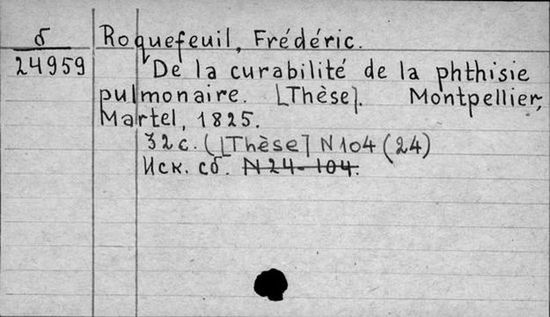 б Roquefeuil, Frédéric.
24959 De la curabilité de la phthisie
pulmonaire. [Thèse]. Montpellier,
Martel, 1825.
32 с. ([Thèse] N 104 (24)
Иск. сб. N 24-104.